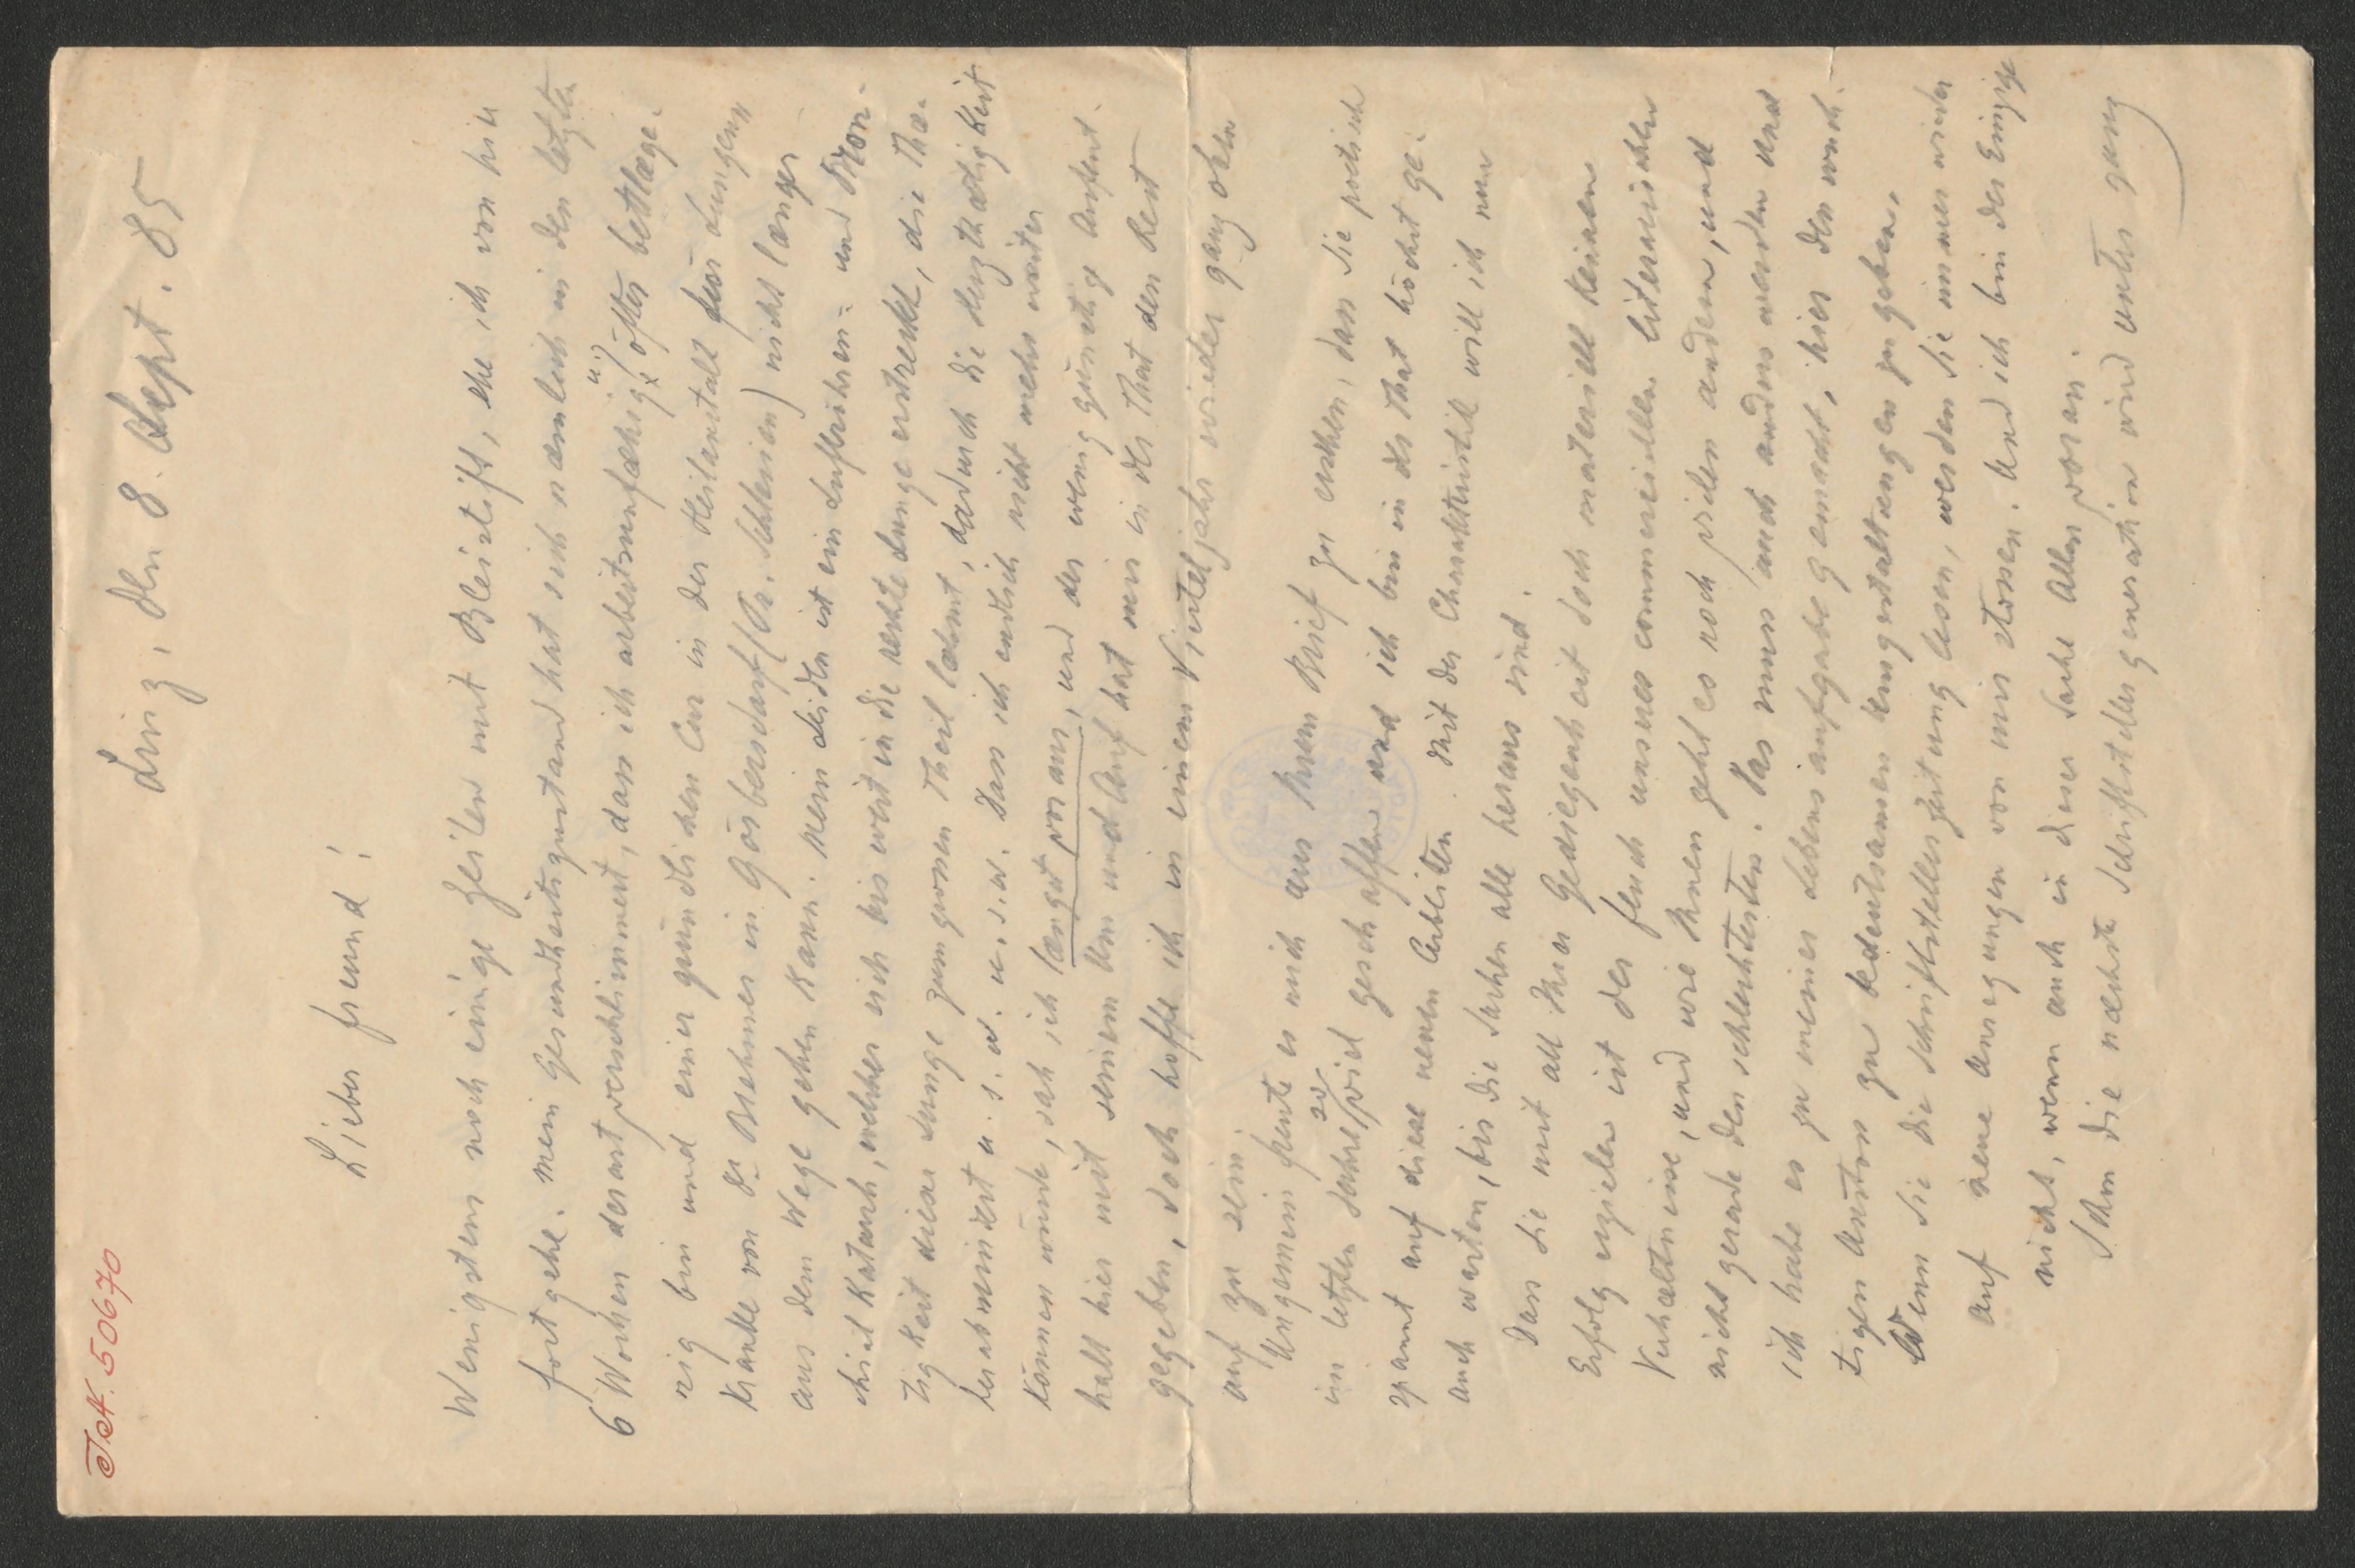 JN. 50670
Linz, den 8. Sept. 85
Lieber Freund!
Wenigstens noch einige Zeilen mit Bleistift, ehe ich von hier
fortgehe. Mein Gesundheitszustand hat sich næmlich in den letzten
6 Wochen derart verschlimmert, dass ich arbeitsunfæhig, öfter bettlæge-
u
rig bin und einer gründlichen Cur in der Heilanstalt für Lungen-
kranke von Dr Brehmer in Görbersdorf (Pr. Schlesien) nicht længer
aus dem Wege gehen kann. Mein Leiden ist ein Luftröhren- und Bron-
chialkatarrh, welcher sich bis weit in die rechte Lunge erstreckt, die Thæ-
tigkeit dieser Lunge zum grossen Theil læhmt, dadurch die Herzthætigkeit
vermindert u. s. w. u. s. w. Dass ich endlich nicht mehr weiter
können würde, sah ich længst voraus, und der wenig günstige Aufent-
halt hier mit seinem Um und Auf hat mir in der That den Rest
gegeben, doch hoffe ich in einem Vierteljahr wieder ganz oben
auf zu sein.
Ungemein freute es mich aus Ihrem Brief zu ersehen, dass Sie poetisch
im letzten Jahre so viel geschaffen und ich bin in der That höchst ge-
spannt auf diese neuen Arbeiten. Mit der Charakteristik will ich nun
auch warten, bis die Sachen alle heraus sind.
Dass Sie mit all Ihrer Gediegenheit doch materiell keinen
Erfolg erzielen ist der Fluch unserer commerciellen literarischen
Verhæltnisse, und wie Ihnen geht es noch vielen andern, und
nicht gerade den schlechtesten. Das muss auch anders werden und
ich habe es zu meiner Lebensaufgabe gemacht, hier den wich-
tigen Anstoss zu bedeutsamen Umgestaltungen zu geben.
Wenn Sie die Schriftstellerzeitung lesen, werden Sie immer wieder
auf neue Anregungen von mir stossen. Und ich bin der Einzige
nicht, wenn auch in dieser Sache Allen voran.
Schon die næchste Schriftstellergeneration wird unter ganz